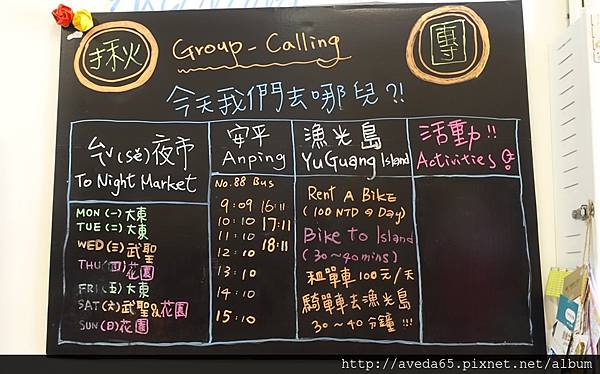 揪 Group-Calling 團
今天我們去哪兒?!
(sě)夜市
To Night Market
MON (一) 大東
TUE (二) 大東
WED (三) 武聖
THU (四) 花園
FRI (五) 大東
SAT (六) 武聖&花園
SUN (日) 花園
安平
Anping
No.88 Bus
9:09 16:11
10:10 17:11
11:10 18:11
12:10
13:10
14:10
15:10
漁光島
YuGuang Island
Rent A Bike
(100 NTD a Day)
Bike to Island
(30~40mins)
租單車100元/天
騎單車去漁光島
30~40分鐘!!!
活動!!
Activities
http://aveda65.pixnet.net/album